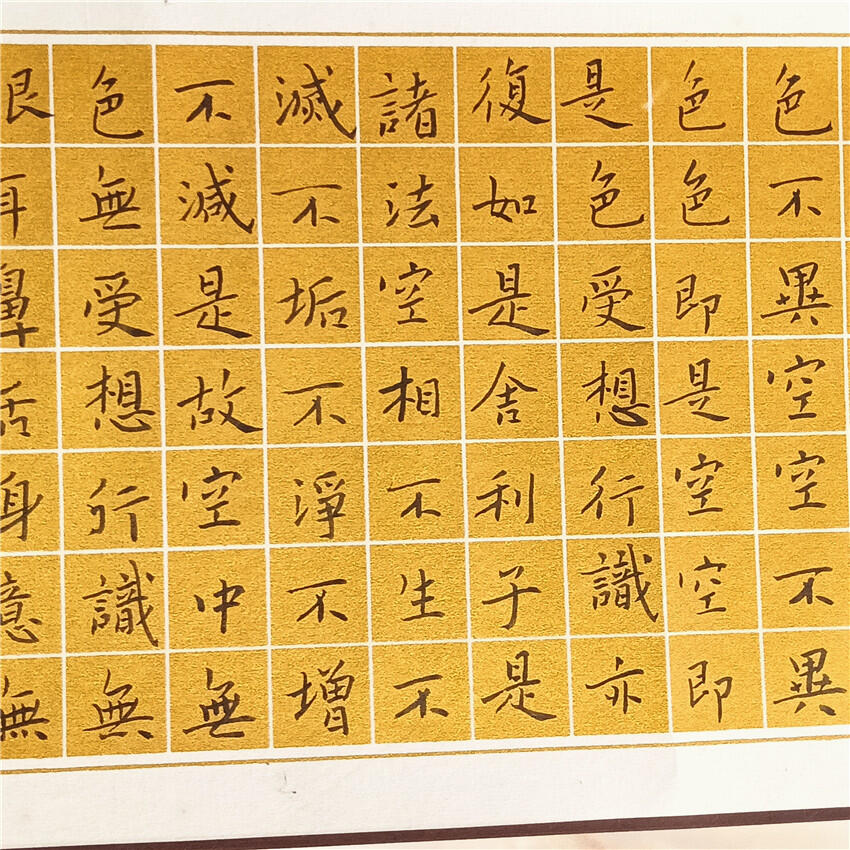 色不異空空不異
色色即是空空即
是色受想行識亦
復如是舍利子是
諸法空相不生不
滅不垢不淨不增
不減是故空中無
色無受想行識無
眼耳鼻舌身意無